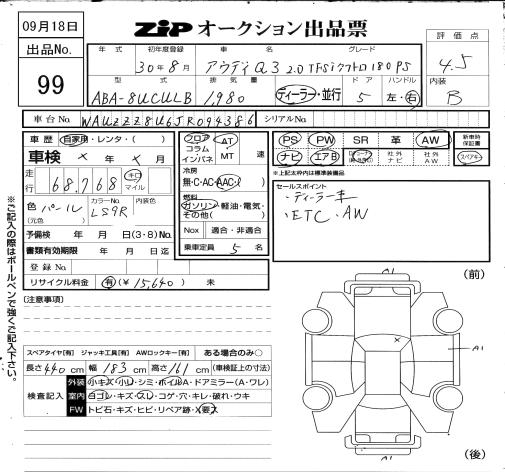 09月18日
ZIP オークション出品票
評価点
出品No.
99
年式 初年度登録 車名 グレード
30年8月 アウディQ3 2.0TFSIクワトロ180PS
4.5
型式 排気量 ドア ハンドル
ABA-8UCULB 1,980 ディーラー・並行 5 左・右
内装
B
車台No. WAUZZZ8U6JR094386 シリアルNo.
車歴 自家用・レンタ・( )
車検 × 年 × 月
走行 68,768 キロ マイル
色 パール カラーNo. LS9R 内装色
(元色)
予備検 年 月 日(3・8)もの
書類有効期限 年 月 日迄
登録No.
リサイクル料金 有(¥15,640) 未
フロア コラム インパネ AT MT 速
冷房
無・C・AC・AAC・( )
燃料
ガソリン・軽油・電気・その他( )
Nox 適合・非適合
乗車定員 5 名
PS PW SR 革 AW
ナビ エアB 社外ナビ 社外AW
新車時保証書
スペアキー
※上記太枠内は標準装備品
セールスポイント
・ディーラー車
・ETC・AW
(注意事項)
スペアタイヤ[有] ジャッキ工具[有] AWロックキー[有] ある場合のみ○
長さ440cm 幅183cm 高さ161cm (車検証上の寸法)
検査記入
外装 小キズ・小凹・シミ・ボイルA・ドアミラー(A・ワレ)
室内 ヨゴレ・キズ・スレ・コゲ・穴・キレ・破れ・ウキ
FW トビ石・キズ・ヒビ・リペア跡・X要文
※ご記入の際はボールペンで強くご記入下さい。
(前)
A1
×
A1
A1
(後)